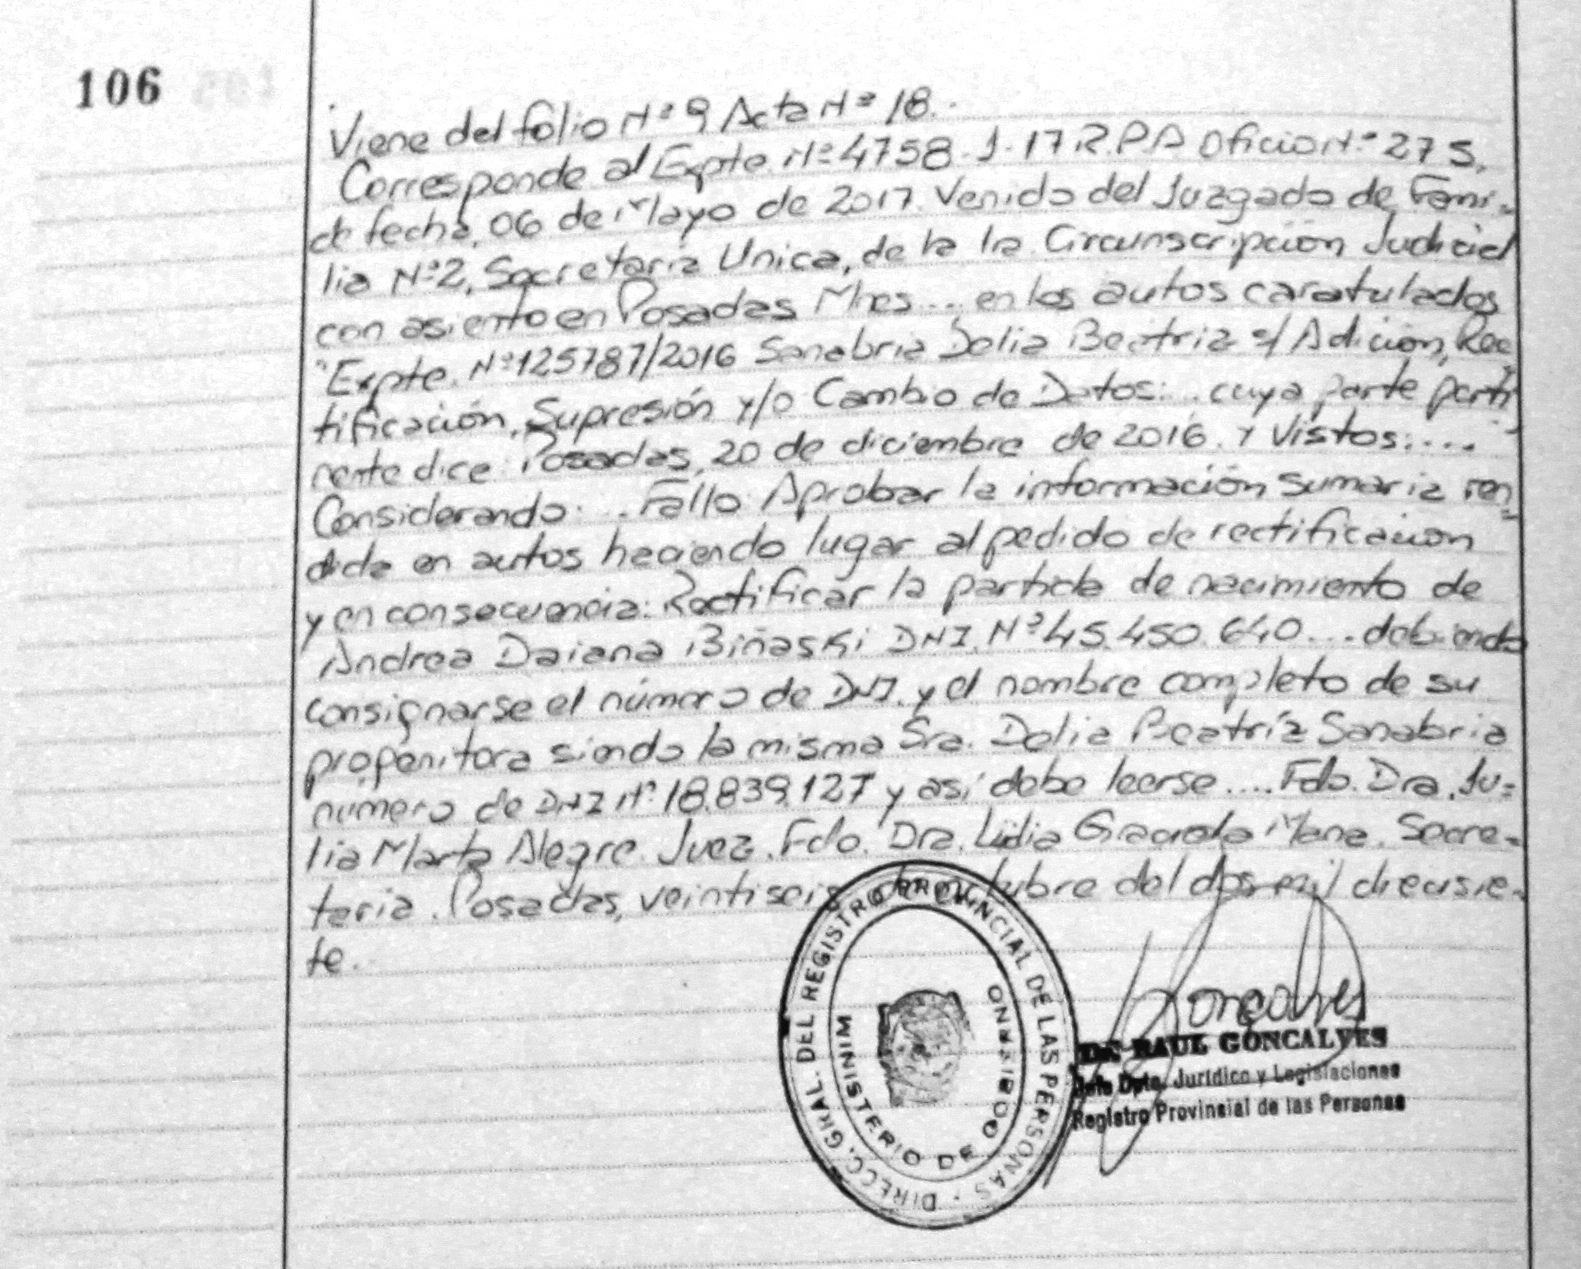 106
Viene del folio Nº 9 Acta Nº 18.-
Corresponde al Expte. Nº 4758-J-17 R.P.P.A Oficio Nº 275,
de fecha, 06 de Mayo de 2017. Venido del Juzgado de Fami-
lia Nº2, Secretaría Unica, de la 1ra Circunscripción Judicial
con asiento en Posadas Mnes.... en los autos caratulados
"Expte. Nº125787/2016 Sanabria Delia Beatriz s/ Adición, Rec
tificación, Supresión y/o Cambio de Datos:... cuya parte perti
nente dice: Posadas, 20 de diciembre de 2016. Y Vistos:....
Considerando:... Fallo: Aprobar la información sumaria ren
dida en autos haciendo lugar al pedido de rectificación
y en consecuencia: Rectificar la partida de nacimiento de
Andrea Daiana Biñaski DNI. Nº 45.450.640... debiendo
consignarse el número de DNI. y el nombre completo de su
progenitora siendo la misma Sra. Delia Beatríz Sanabria
número de DNI Nº 18.839.127 y así debe leerse.... Fdo. Dra. Ju=
lia Marta Alegre. Juez. Fdo. Dra. Lidia Graciela Secre-
taria. Posadas, veintiseis de octubre del dos mil diecisie-
te.-
DIRECC. GRAL. DEL REGISTRO PROVINCIAL DE LAS PERSONAS
MINISTERIO DE GOBIERNO
Goncalves
Dr. RAUL GONCALVES
Jefe Dpto. Jurídico y Legislaciones
Registro Provincial de las Personas